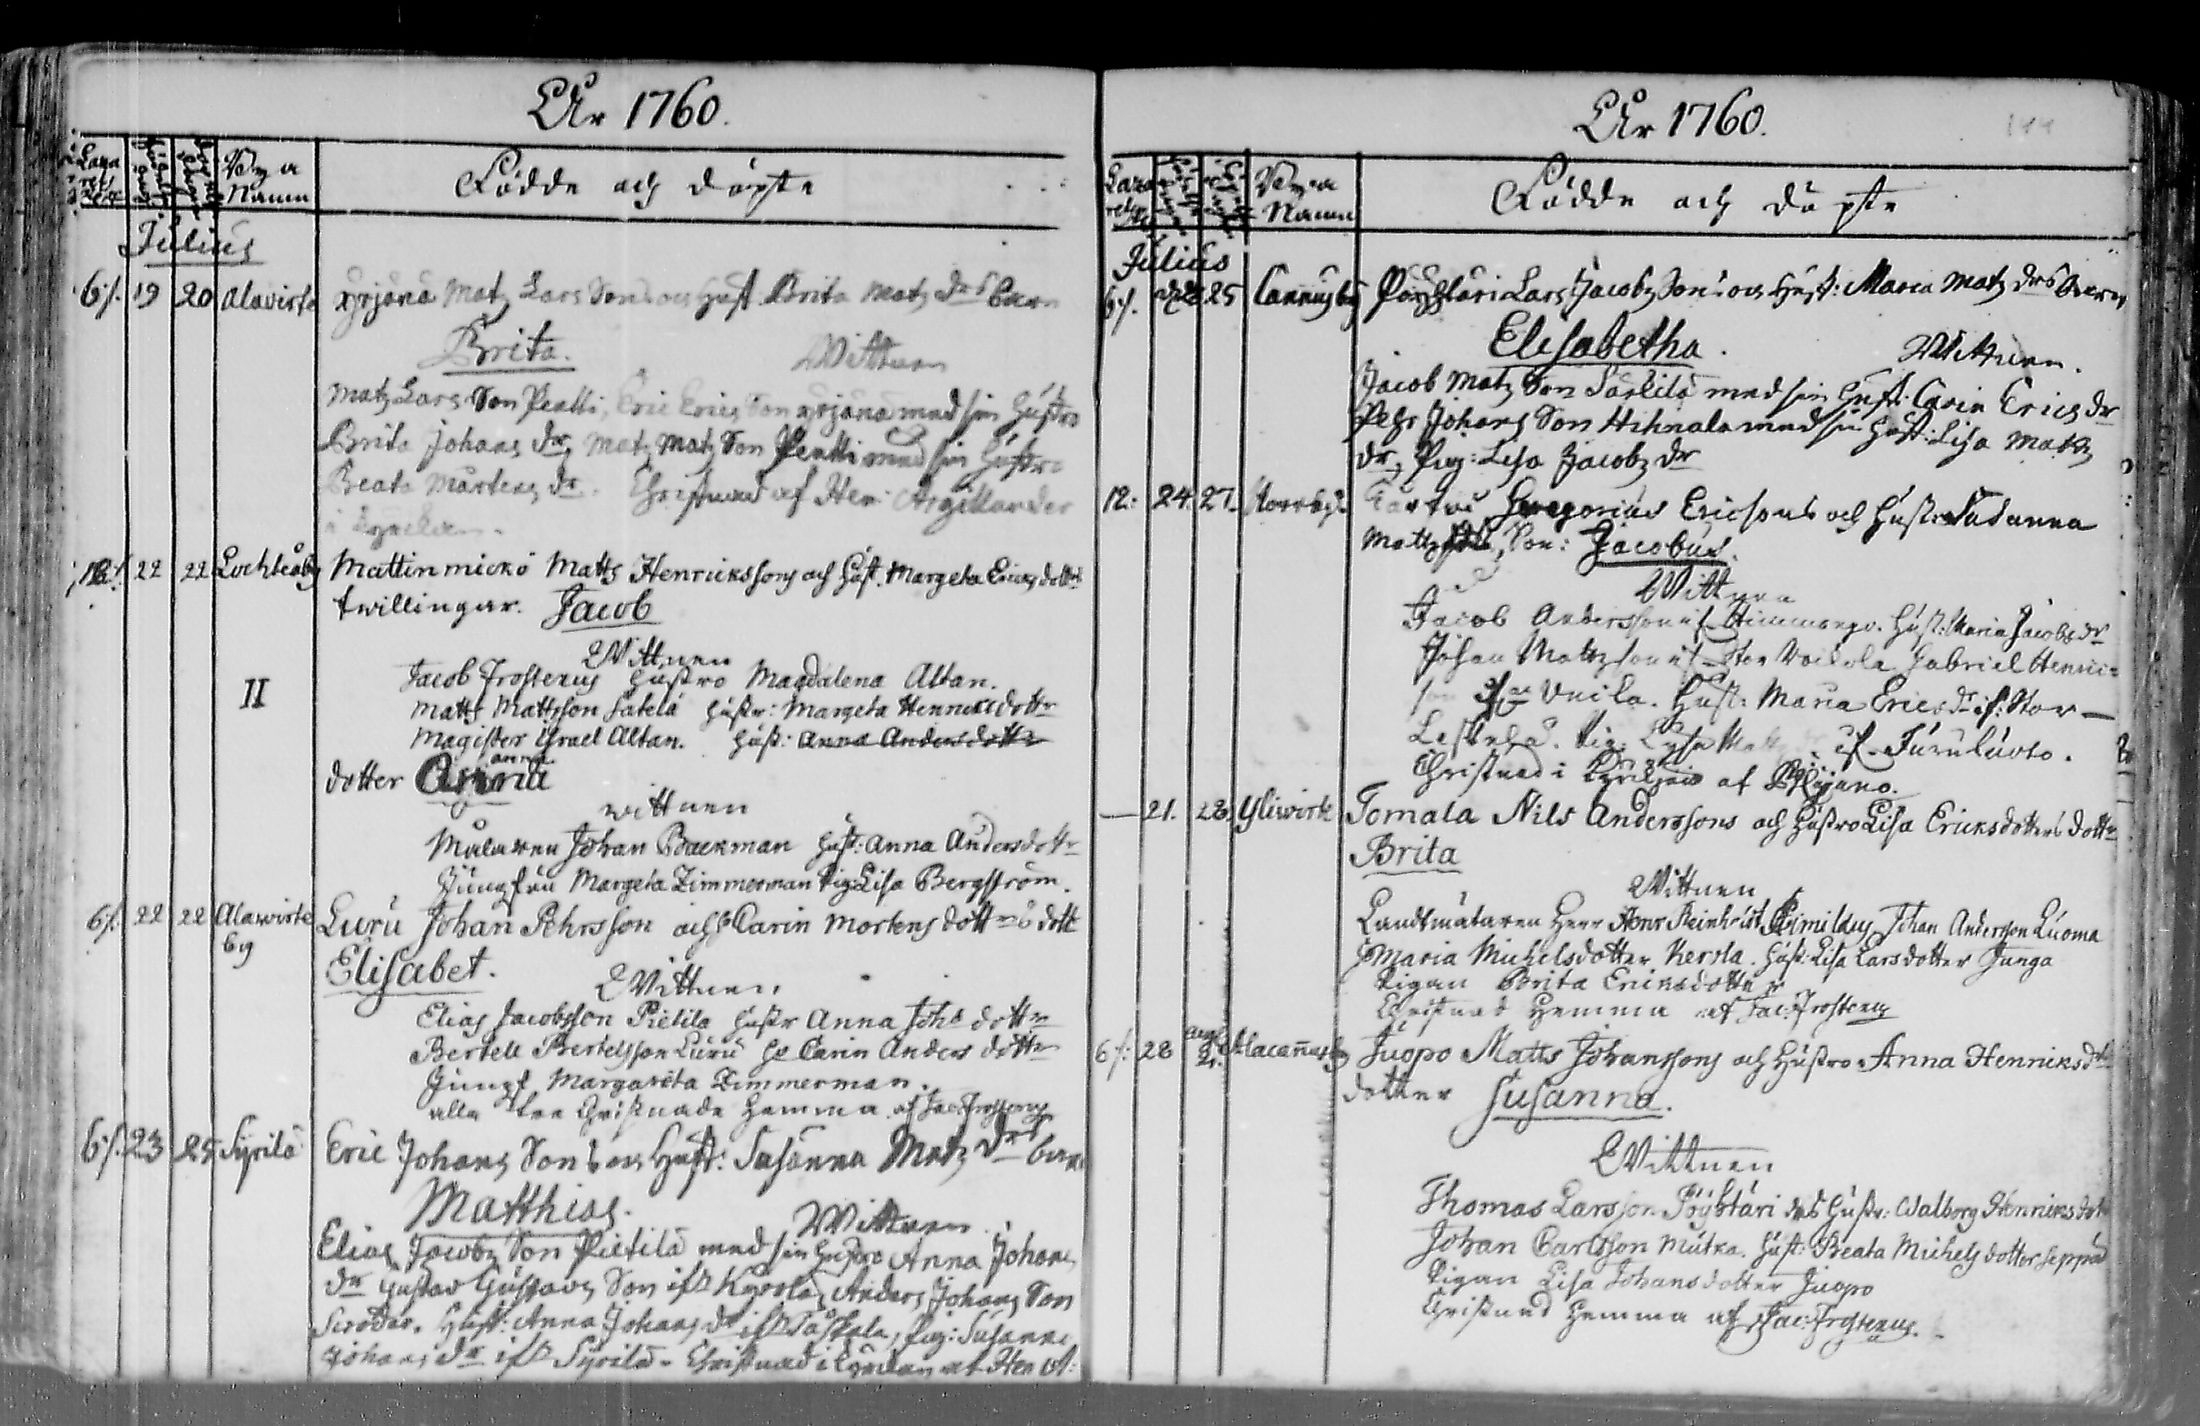 År 1760.
Bya Namn
Födde och döpte
Julius
6/. 19 20 Alavirte Yrjänä Matz Lars Sons och Hust. Brita Matz Drs barn
Brita. Wittnen
Matz Lars Son Pentti, Eric Erics Son Yrjänä med sin Hustro
Brita Johans Dr, Matz Matz Son Pentti med sin Hustro
Beata Mårtens Dr. Christnad af Herr Argillander
i Kyrckan.
12/. 22 22 Lochteåby Mattin micko Matts Henricksons och Hust. Margeta Erics dotters
twillingar. Jacob
Wittnen
Jacob Frosterus Hustro Magdalena Altan.
II
Matts Mattsson Hustr: Margeta Henricsdottr
Magister Israel Altan. Hust: Anna Andersdottr
dotter Anna
wittnen
Målaren Johan Backman Hust: Anna Andersdottr
Jungfru Margeta Zimmerman Pig: Lisa Bergström.
6/. 22 22 Alawirte by Luru Johan Pehrsson och H Carin Mortens dotters dott
Elisabet.
Wittnen
Elias Jacobsson Pietilä Hustr Anna Johs dottr
Bertell Bertelsson Luru H Carin Anders dottr
Jungf Margareta Zimmerman.
alla tre Christnade hemma af Jac Frosterus
6/. 23 25 Sÿrilä Eric Johans Sons och Hust: Susanna Matz Drs barn
Matthias. Wittnen
Elias Jacobs Son Pietilä med sin Hustro Anna Johans
Dr Gustav Gustavs Son ifr Kyrola, Anders Johans Son
Scrodar. Hust: Anna Johans Dr ifr, Pig: Susanna
Johans Dr ifr Sÿrilä. Christnad i Kyrckan af Herr A:
År 1760.
Bya Namn
Födde och döpte
Julius
6/. 25 Cannusby Pöyhtäri Lars Jacobs Sons och Hust: Maria Matz Drs barn
Elisabetha. Wittnen.
Jacob Matz Son Särkilä med sin Hust. Carin Erics Dr
Pehr Johans Son Hihnala med sin Hust: Lisa Matz
Dr, Pig: Lisa Jacobs Dr
12: 24. 27. Gregorius Ericsons och Hustr Susanna
Matts, Son: Jacobus.
Wittnen
Jacob Andersson if Himmango. Hust: Maria Jacobsdr
Johan Mattsson if Stor Gabriel Henric=
son. Hust: Maria Ericsdr if. Stor
Pig: Lysa if
Christnad i af
— 21. 28. Yliwirte Tomala Nils Anderssons och Hustro Lisa Ericksdotters dottr
Brita
Wittnen
Landtmätaren Herr Henr Reinholt Johan Andersson Luoma
H Maria Michelsdotter Kerola. Hust: Lisa Larsdotter Junga
Pigan Brita Ericksdotter
Christnad hemma af Jac: Frosterus
6/: 28 Aug 2. Alacannusby Juopo Matts Johanssons och Hustro Anna Henricksdr
dotter Susanna.
Wittnen
Thomas Larsson Pöyhtäri des Hustr: Walborg Henricksdott
Johan Carlsson Mutka. Hust: Beata Michels dotter Seppäd
Pigan Lisa Johansdotter Juopo
Christnad hemma af Jac: Frosterus.